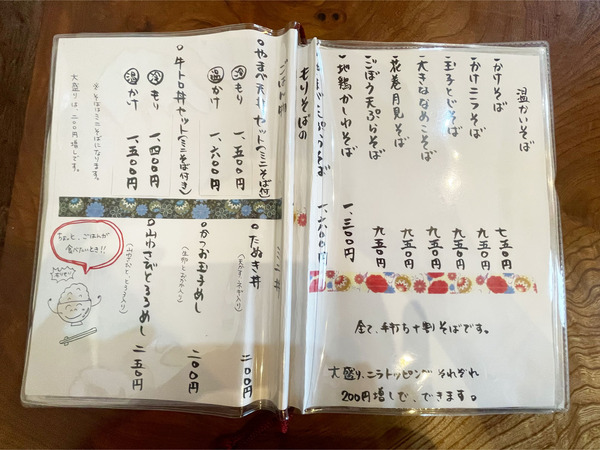 温かいそば
一かけそば 七五〇円
一かけニラそば 九五〇円
一玉子とじそば 九五〇円
一大きななめこそば 九五〇円
一花巻月見そば 九五〇円
一ごぼう天ぷらそば 九五〇円
一地鶏かしわそば 一、三〇〇円
天ぷらそば 一、六〇〇円
全て、手打ち十割そばです。
大盛り、ニラトッピングそれぞれ
200円増しで、できます。
もりそばの
ごはん物
○やまべ天丼セット(ミニそば付)
冷もり 一、五〇〇円
温かけ 一、六〇〇円
○牛トロ丼セット(ミニそば付き)
冷もり 一、四〇〇円
温かけ 一、五〇〇円
※そばはミニそばになります。
大盛りは、二〇〇円増しです。
○たぬき丼 二〇〇円
(天かす・ネギ入り)
○かつお玉子めし 二〇〇円
(生卵とおかか入り)
○山わさびとろろめし 二五〇円
(山わさびと、とろろ入り)
ちょっと、ごはんが
食べたいとき!!